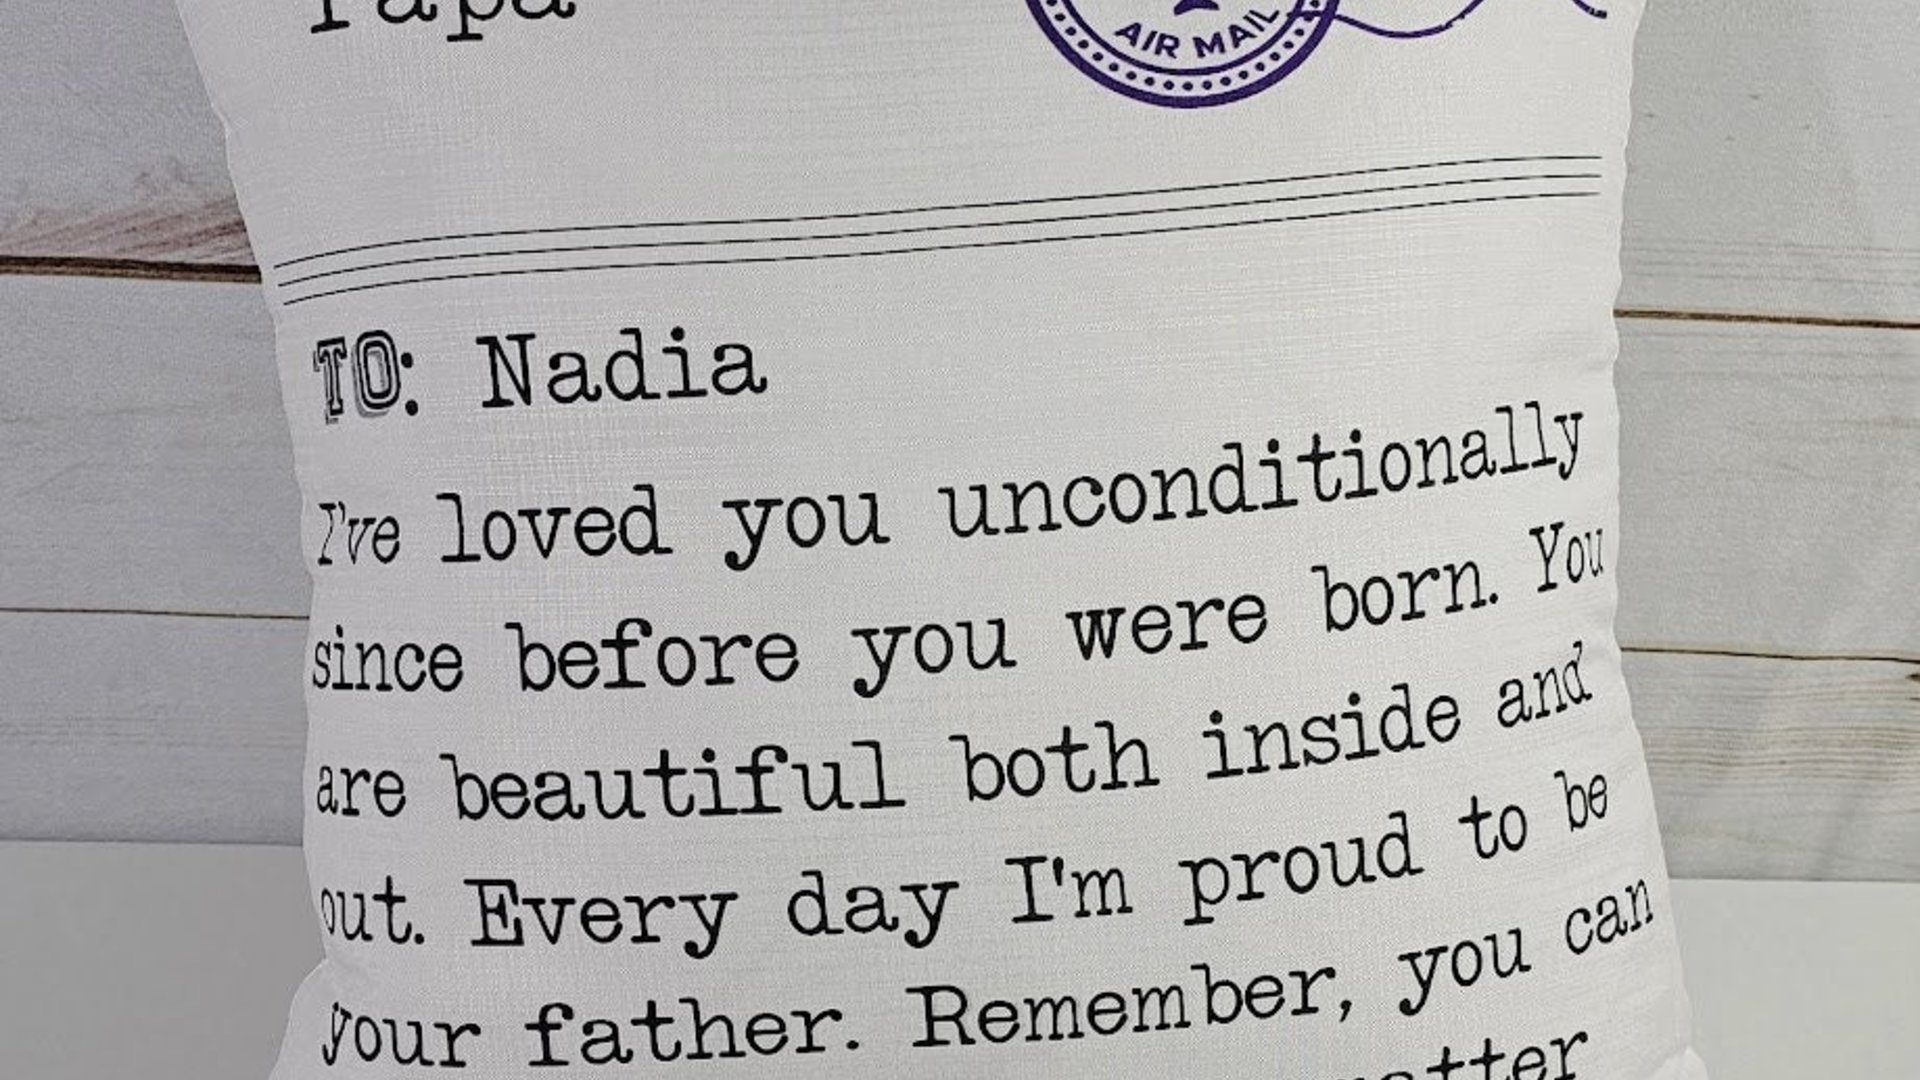 Papa
AIR MAIL
TO: Nadia
I've loved you unconditionally
since before you were born. You
are beautiful both inside and
out. Every day I'm proud to be
your father. Remember, you can